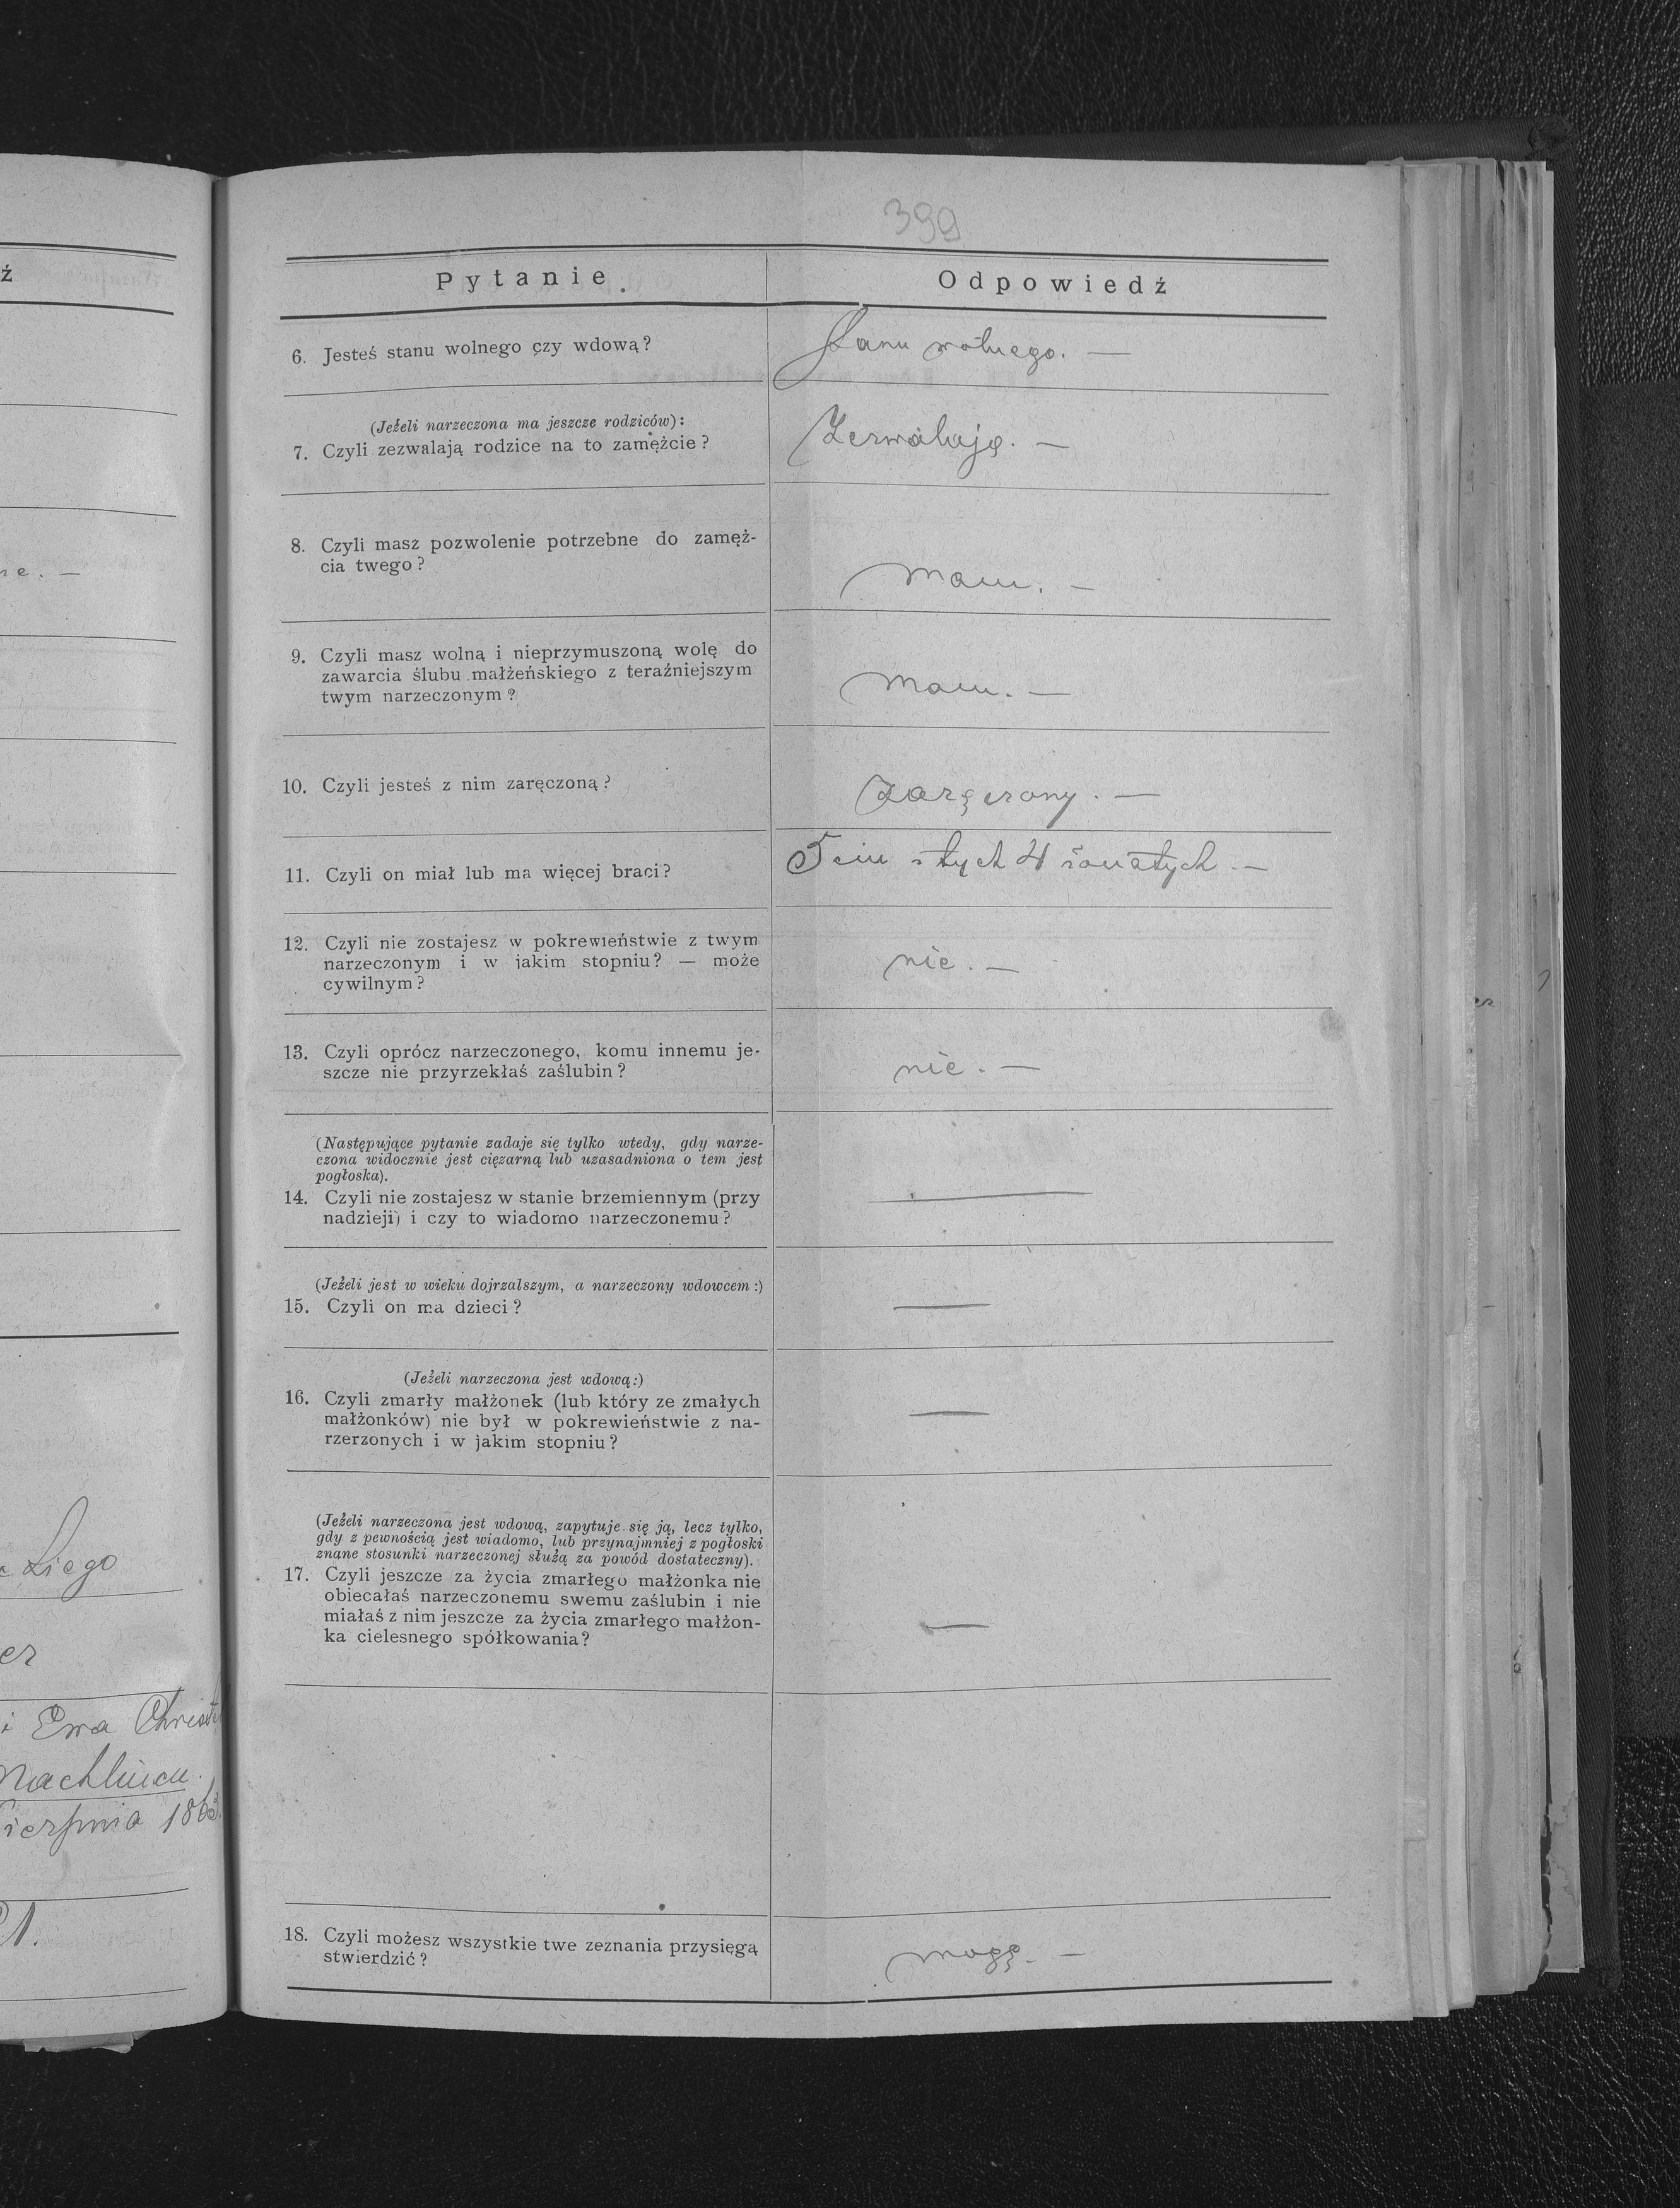 399
ź
Pytanie.
Odpowiedź
6. Jesteś stanu wolnego czy wdową?
Stanu wolnego. —
(Jeżeli narzeczona ma jeszcze rodziców):
7. Czyli zezwalają rodzice na to zamężcie?
Zezwalają. —
8. Czyli masz pozwolenie potrzebne do zamęż-
cia twego?
mam. —
9. Czyli masz wolną i nieprzymuszoną wolę do
zawarcia ślubu małżeńskiego z teraźniejszym
twym narzeczonym?
mam. —
10. Czyli jesteś z nim zaręczoną?
zaręczony. —
11. Czyli on miał lub ma więcej braci?
5ciu z tych 4 żonatych —
12. Czyli nie zostajesz w pokrewieństwie z twym
narzeczonym i w jakim stopniu? — może
cywilnym?
nie. —
13. Czyli oprócz narzeczonego, komu innemu je-
szcze nie przyrzekłaś zaślubin?
nie. —
(Następujące pytanie zadaje się tylko wtedy, gdy narze-
czona widocznie jest ciężarną lub uzasadniona o tem jest
pogłoska).
14. Czyli nie zostajesz w stanie brzemiennym (przy
nadzieji) i czy to wiadomo narzeczonemu?
—
(Jeżeli jest w wieku dojrzalszym, a narzeczony wdowcem:)
15. Czyli on ma dzieci?
—
(Jeżeli narzeczona jest wdową:)
16. Czyli zmarły małżonek (lub który ze zmałych
małżonków) nie był w pokrewieństwie z na-
rzerzonych i w jakim stopniu?
—
(Jeżeli narzeczona jest wdową, zapytuje się ją, lecz tylko,
gdy z pewnością jest wiadomo, lub przynajmniej z pogłoski
znane stosunki narzeczonej służą za powód dostateczny).
17. Czyli jeszcze za życia zmarłego małżonka nie
obiecałaś narzeczonemu swemu zaślubin i nie
miałaś z nim jeszcze za życia zmarłego małżon-
ka cielesnego spółkowania?
—
18. Czyli możesz wszystkie twe zeznania przysięgą
stwierdzić?
mogę. —
i Ewa
Machlincu.
sierpnia